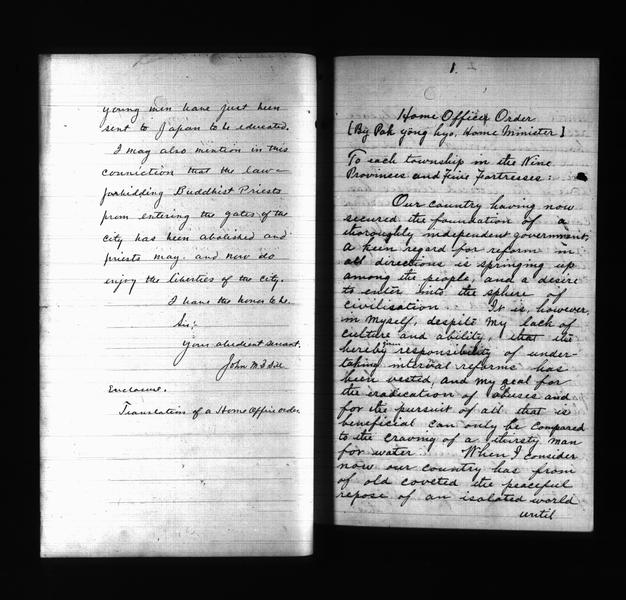 young men have just been
sent to Japan to be educated.
I may also mention in this
conviction that the law—
forbidding Buddhist Priests
from entering the gates of the
city has been abolished and
priests may and now do
enjoy the liberties of the city.
I have the honor to be,
Sir,
Your obedient servant,
John M B Sill
Enclosure.
Translation of a Home Office order.
1.
Home Office Order
[By Pak yöng hyo, Home Minister]
To each township in the Nine
Provinces and Five Fortresses:
Our country having now
secured the foundation of a
thoroughly independent government,
a keen regard for reform in
all directions is springing up
among the people, and a desire
to enter into the sphere of
civilisation. It is, however,
in myself, despite my lack of
culture and ability, that the
hereby responsibility of under-
taking internal reforms has
been vested, and my zeal for
the eradication of abuses and
for the pursuit of all that is
beneficial can only be compared
to the craving of a thirsty man
for water. When I consider
now our country has from
of old coveted the peaceful
repose of an isolated world
until